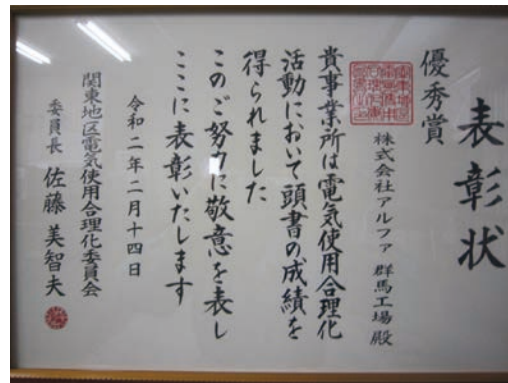 表彰状
優秀賞
株式会社アルファ 群馬工場 殿
貴事業所は電気使用合理化
活動において頭書の成績を
得られました
このご努力に敬意を表し
ここに表彰いたします
令和二年二月十四日
関東地区電気使用合理化委員会
委員長 佐藤 美智夫